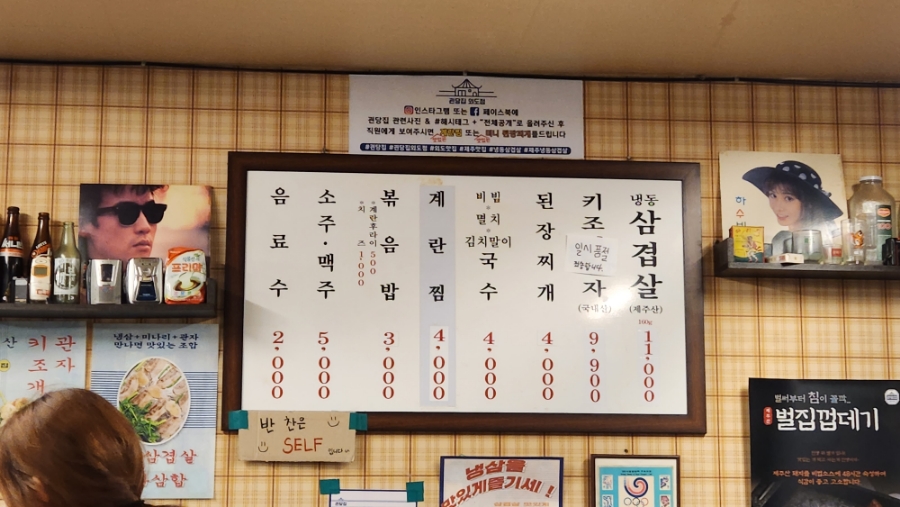 관당집 외도점
인스타그램 또는 페이스북에
관당집 관련사진 & #해시태그 + "전체공개"로 올려주신 후
직원에게 보여주시면 또는 드립니다
#관당집 #관당집외도점 #외도맛집 #제주맛집 #냉동삼겹살 #제주냉동삼겹살
냉동 삼겹살 (제주산) 180g 11,000
키조 자 (국내산) 9,900
일시품절
죄송합니다.
된장찌개 4,000
비빔
멸치
김치말이
국수 4,000
계란찜 4,000
볶음밥 3,000
계란후라이 500
치즈 1,000
소주·맥주 5,000
음료수 2,000
반찬은
SELF
입니다
하수빈
프리마
산
키조개
관자
냉삼+미나리+관자
만나면 맛있는 조합
삼겹살
삼합
냉삼을
맛있게즐기세!
관당집
벌써부터 침이 꼴깍..
벌집껍데기